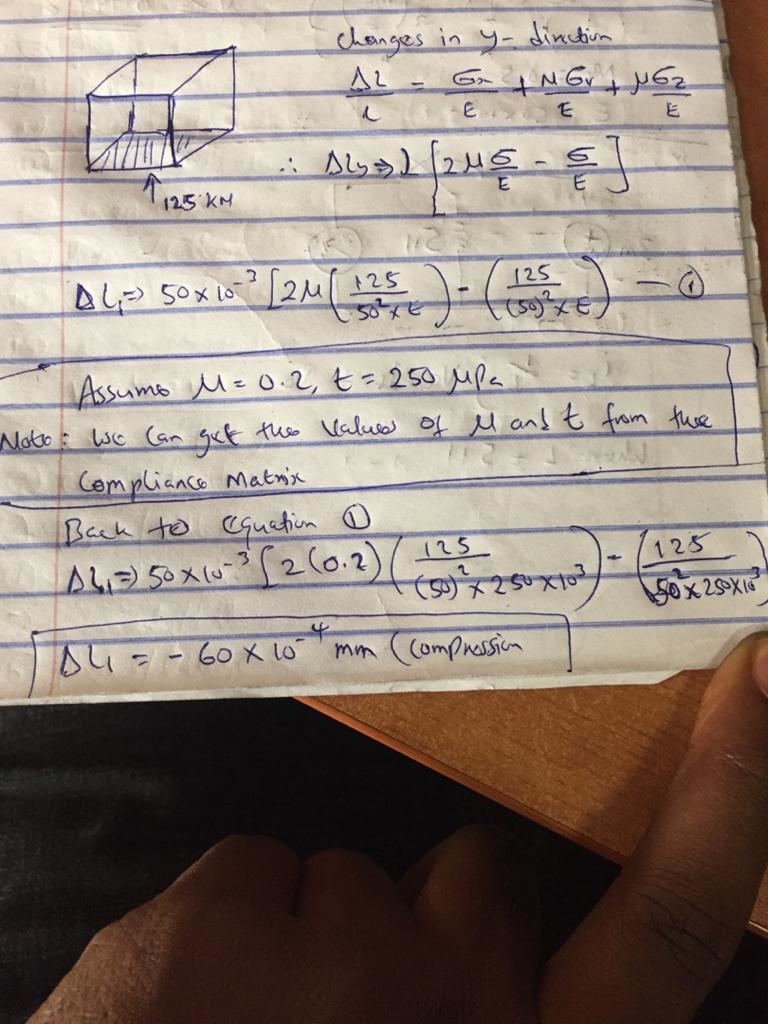 Changes in y- direction
ΔL/L = σx/E + μσy/E + μσz/E
125 KN
∴ ΔLy ⇒ L [2μ σ/E - σ/E]
ΔL₁ ⇒ 50 x 10⁻³ [2μ (125/50² x E) - (125/(50)² x E) — ①
Assume μ = 0.2, E = 250 MPa
Note: We can get the values of μ and E from the
Compliance Matrix
Back to equation ①
ΔL₁ ⇒ 50 x 10⁻³ [2(0.2) (125/(50)² x 250 x 10³) - (125/50² x 250 x 10³)
ΔL₁ = - 60 x 10⁻⁴ mm (Compression